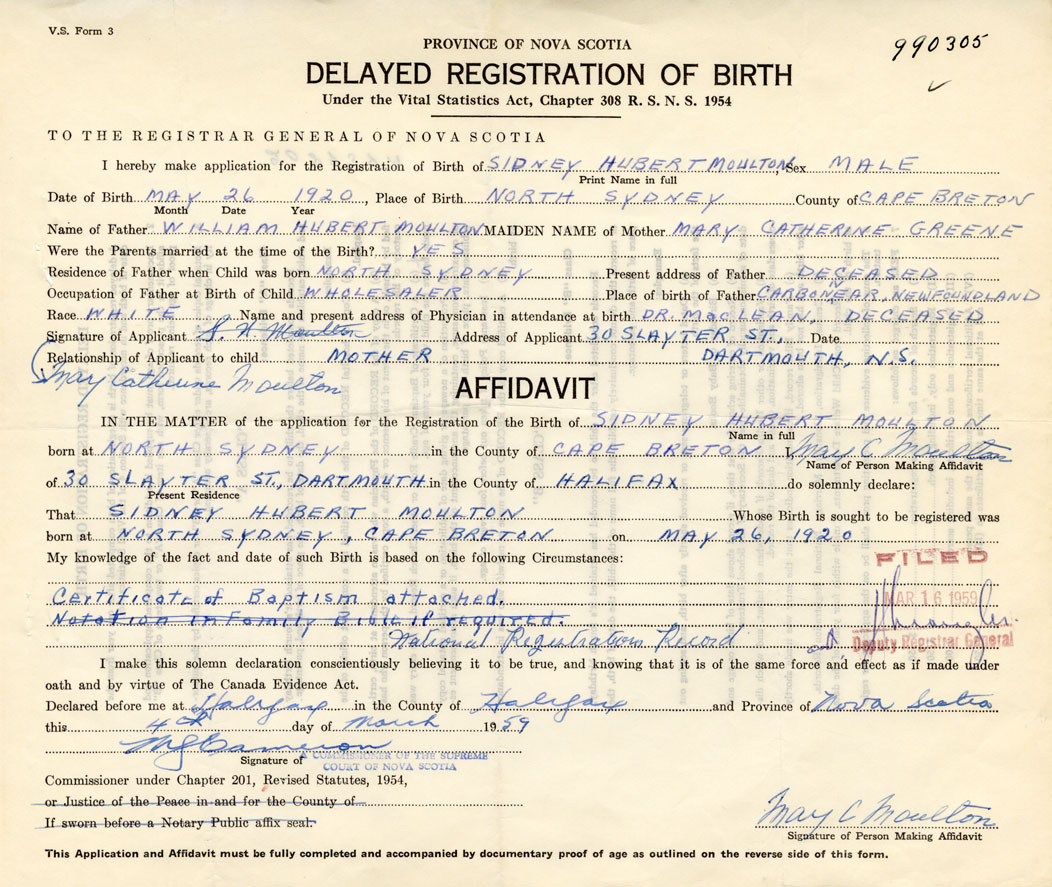 V.S. Form 3
990305
PROVINCE OF NOVA SCOTIA
DELAYED REGISTRATION OF BIRTH
Under the Vital Statistics Act, Chapter 308 R. S. N. S. 1954
TO THE REGISTRAR GENERAL OF NOVA SCOTIA
I hereby make application for the Registration of Birth of SIDNEY HUBERT MOULTON, Sex MALE
Print Name in full
Date of Birth MAY 26 1920, Place of Birth NORTH SYDNEY County of CAPE BRETON
Month Date Year
Name of Father WILLIAM HUBERT MOULTON MAIDEN NAME of Mother MARY CATHERINE GREENE
Were the Parents married at the time of the Birth? YES
Residence of Father when Child was born NORTH SYDNEY Present address of Father DECEASED
Occupation of Father at Birth of Child WHOLESALER Place of birth of Father CARBONEAR, NEWFOUNDLAND
Race WHITE Name and present address of Physician in attendance at birth DR. MacLEAN, DECEASED
Signature of Applicant S. H Moulton Address of Applicant 30 SLAYTER ST., Date
Relationship of Applicant to child MOTHER DARTMOUTH, N.S.
May Catherine Moulton
AFFIDAVIT
IN THE MATTER of the application for the Registration of the Birth of SIDNEY HUBERT MOULTON
Name in full
born at NORTH SYDNEY in the County of CAPE BRETON I, May C Moulton
Name of Person Making Affidavit
of 30 SLAYTER ST., DARTMOUTH in the County of HALIFAX do solemnly declare:
Present Residence
That SIDNEY HUBERT MOULTON Whose Birth is sought to be registered was
born at NORTH SYDNEY, CAPE BRETON on MAY 26, 1920
My knowledge of the fact and date of such Birth is based on the following Circumstances:
FILED
Certificate of Baptism attached.
MAR 16 1959
Notation in Family Bible if required.
National Registration Record
Deputy Registrar General
I make this solemn declaration conscientiously believing it to be true, and knowing that it is of the same force and effect as if made under
oath and by virtue of The Canada Evidence Act.
Declared before me at Halifax in the County of Halifax and Province of Nova Scotia
this 4th day of March 1959
MJ Cameron
Signature of A COMMISSIONER OF THE SUPREME
COURT OF NOVA SCOTIA
Commissioner under Chapter 201, Revised Statutes, 1954,
or Justice of the Peace in and for the County of
If sworn before a Notary Public affix seal.
May C Moulton
Signature of Person Making Affidavit
This Application and Affidavit must be fully completed and accompanied by documentary proof of age as outlined on the reverse side of this form.